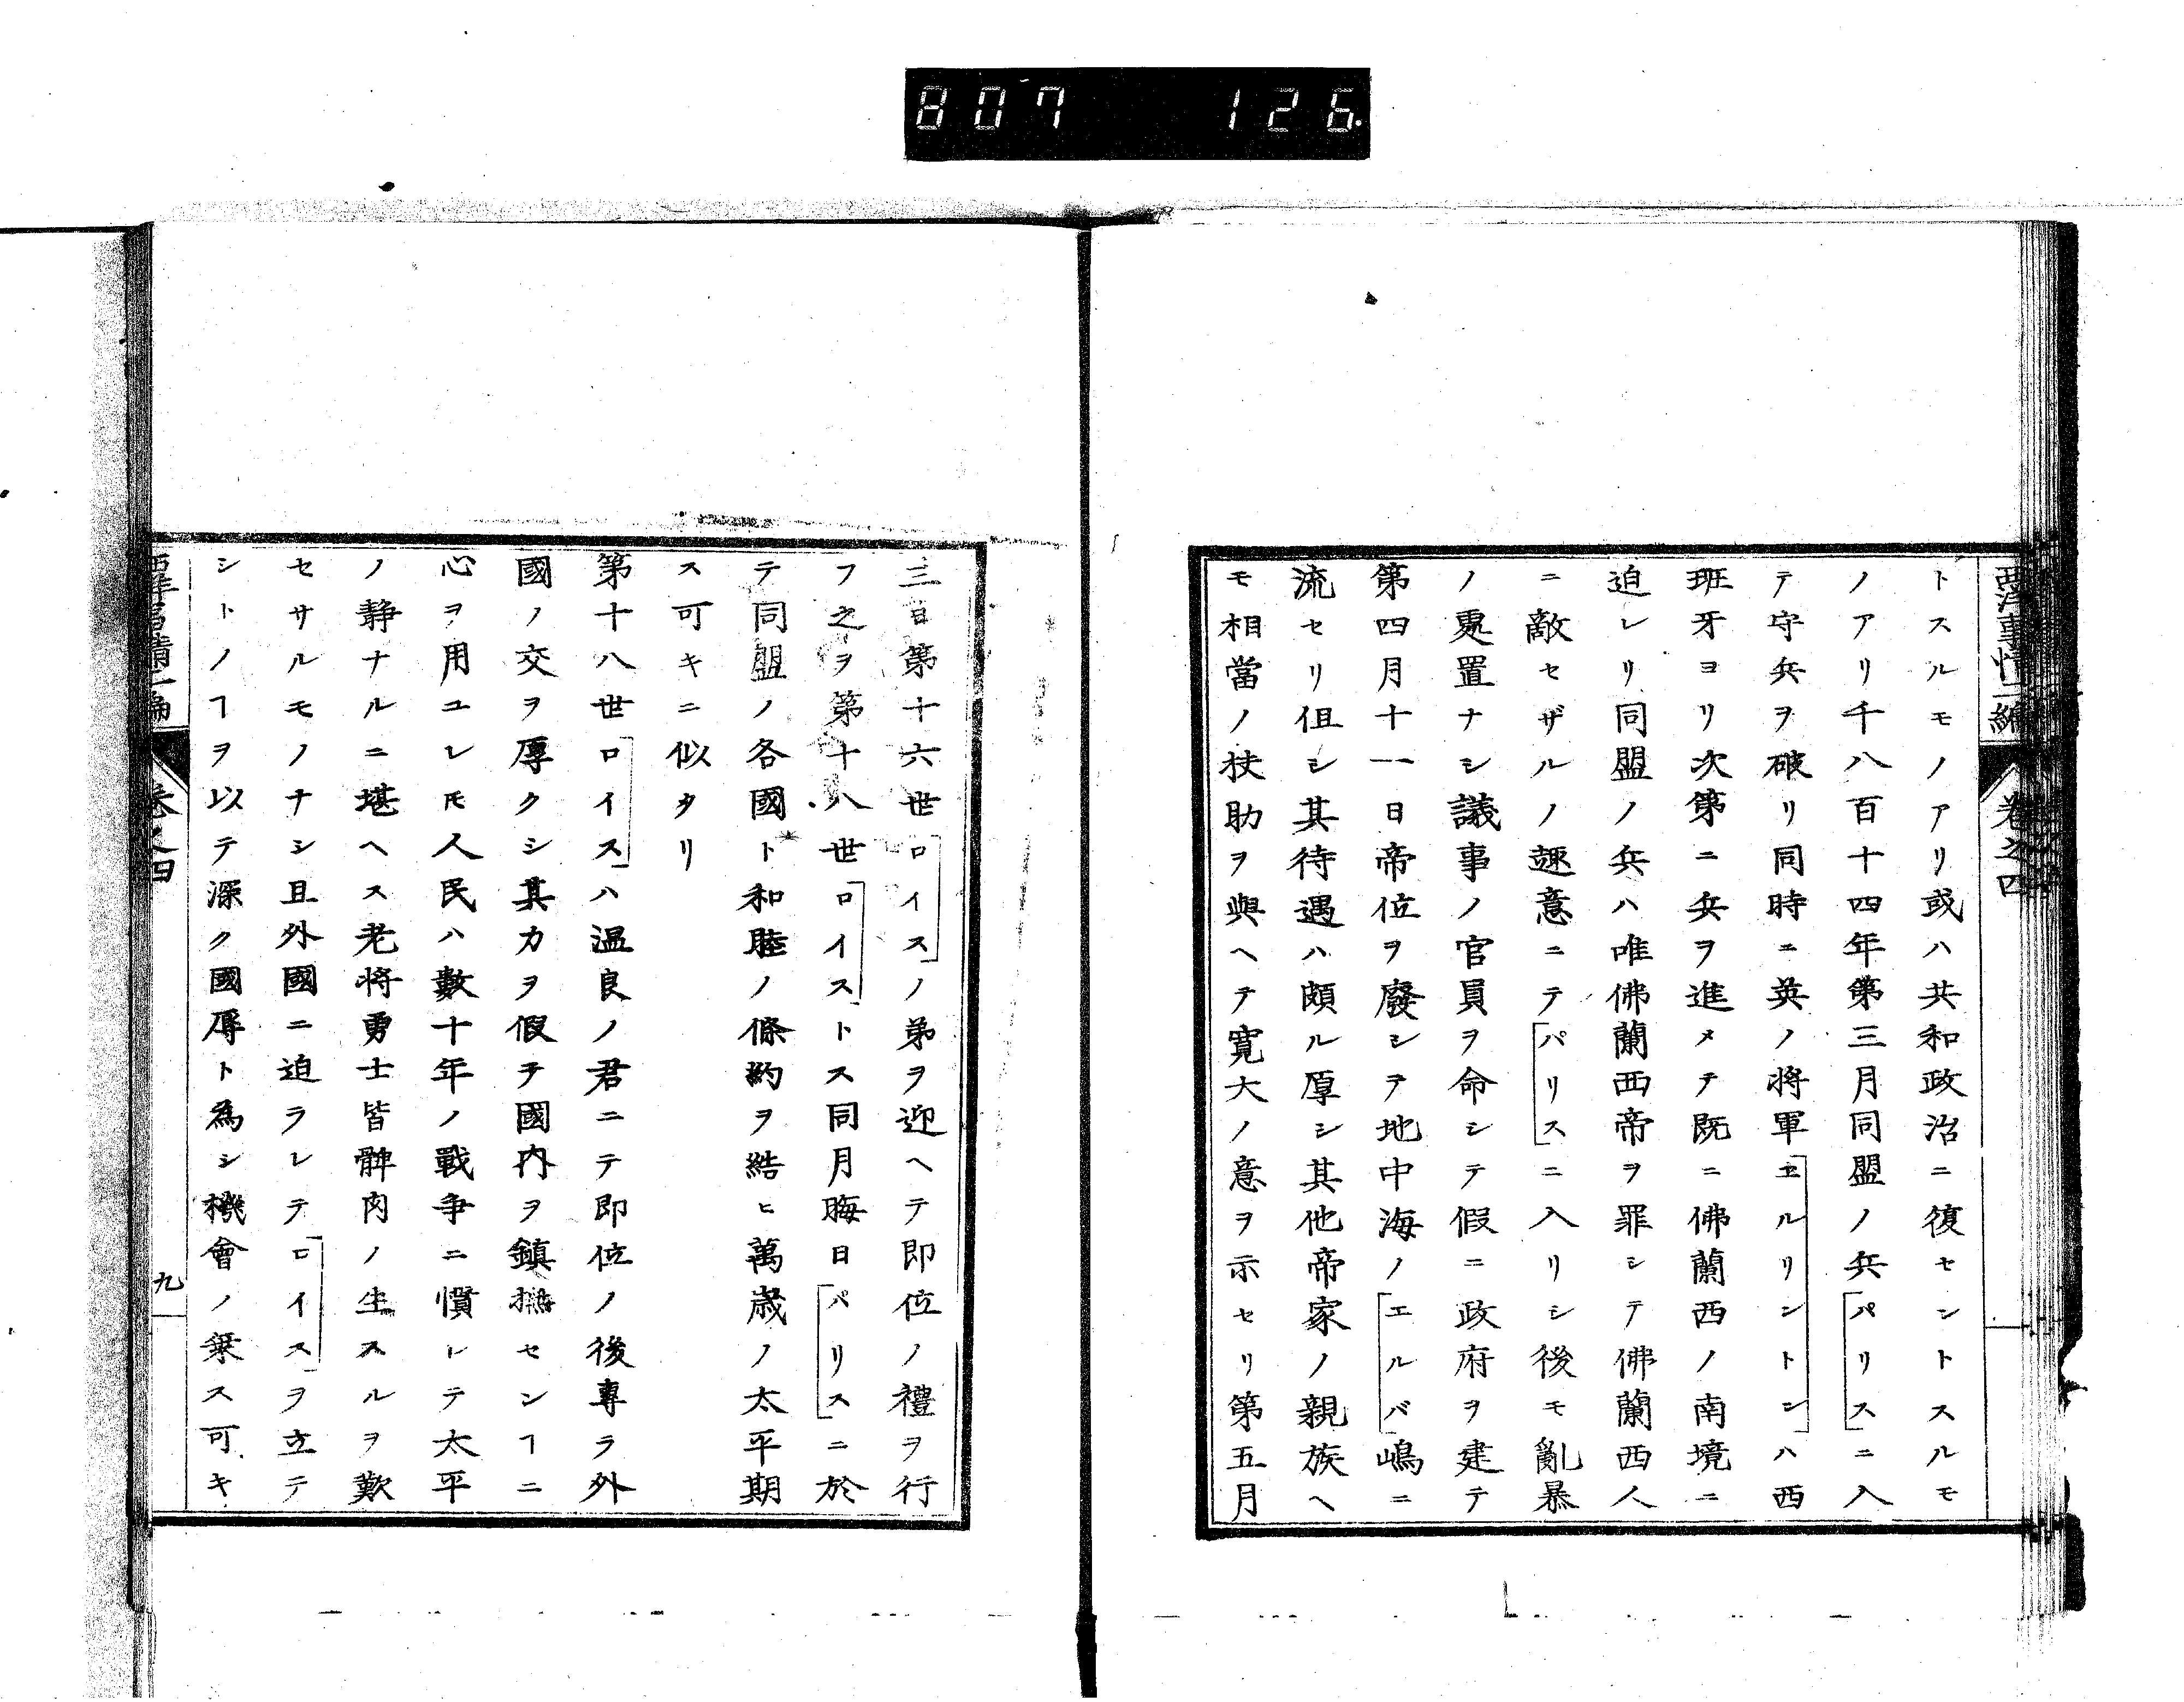 807 126
西洋事情二編 卷之四
トスルモノアリ或ハ共和政治ニ復セントスルモ
ノアリ千八百十四年第三月同盟ノ兵「パリス」ニ入
テ守兵ヲ破リ同時ニ英ノ将軍「エルリントン」ハ西
班牙ヨリ次第ニ兵ヲ進メテ既ニ佛蘭西ノ南境ニ
迫レリ同盟ノ兵ハ唯佛蘭西帝ヲ罪シテ佛蘭西人
ニ敵セザルノ趣意ニテ「パリス」ニ入リシ後モ亂暴
ノ處置ナシ議事ノ官員ヲ命シテ假ニ政府ヲ建テ
第四月十一日帝位ヲ廢シテ地中海ノ「エルバ」嶋ニ
流セリ但シ其待遇ハ頗ル厚シ其他帝家ノ親族ヘ
モ相當ノ扶助ヲ與ヘテ寛大ノ意ヲ示セリ第五月
三日第十六世「ロイス」ノ弟ヲ迎ヘテ即位ノ禮ヲ行
フ之ヲ第十八世「ロイス」トス同月晦日「パリス」ニ於
テ同盟ノ各國ト和睦ノ條約ヲ結ヒ萬歳ノ太平期
ス可キニ似タリ
第十八世「ロイス」ハ温良ノ君ニテ即位ノ後専ラ外
國ノ交ヲ厚クシ其力ヲ假テ國内ヲ鎮撫センヿニ
心ヲ用ユレ𪜈人民ハ數十年ノ戰争ニ慣レテ太平
ノ静ナルニ堪ヘス老将勇士皆髀肉ノ生スルヲ歎
セサルモノナシ且外國ニ迫ラレテ「ロイス」ヲ立テ
シトノヿヲ以テ深ク國辱ト為シ機會ノ乗ス可キ
西洋事情二編 卷之四 九